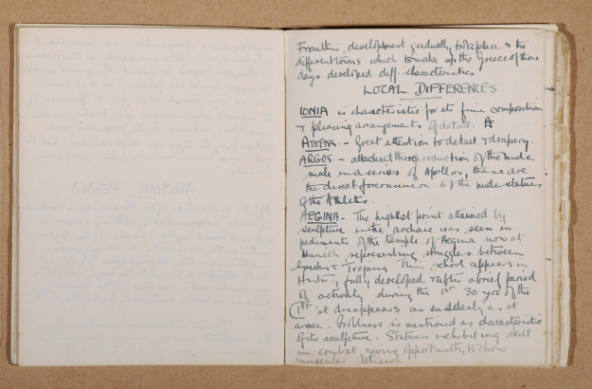 From this, development gradually took place & the
different towns which to make up the Greece of those
days developed diff. characteristics
LOCAL DIFFERENCES
IONIA is characteristic for its fine composition
& pleasing arrangements of detail. A
ATHENS. - Great attention to detail & drapery.
ARGOS - attacked the reproduction of the nude
male in a series of Apollos, these are
the direct forerunners of the nude statues
of the Athletes.
AEGINA - The highest point attained by
sculpture in the archaic was seen in
pediments of the temple of Aegina now at
Munich representing struggles between
Greeks & Trojans. This school appears in
History fully developed & after a brief period
of activity during the 1st 30 yrs of the
it disappears as suddenly as it
arose. Boldness is mentioned as characteristic
of its sculpture. Statues exhibiting skill
in combat giving opportunity to show
muscular